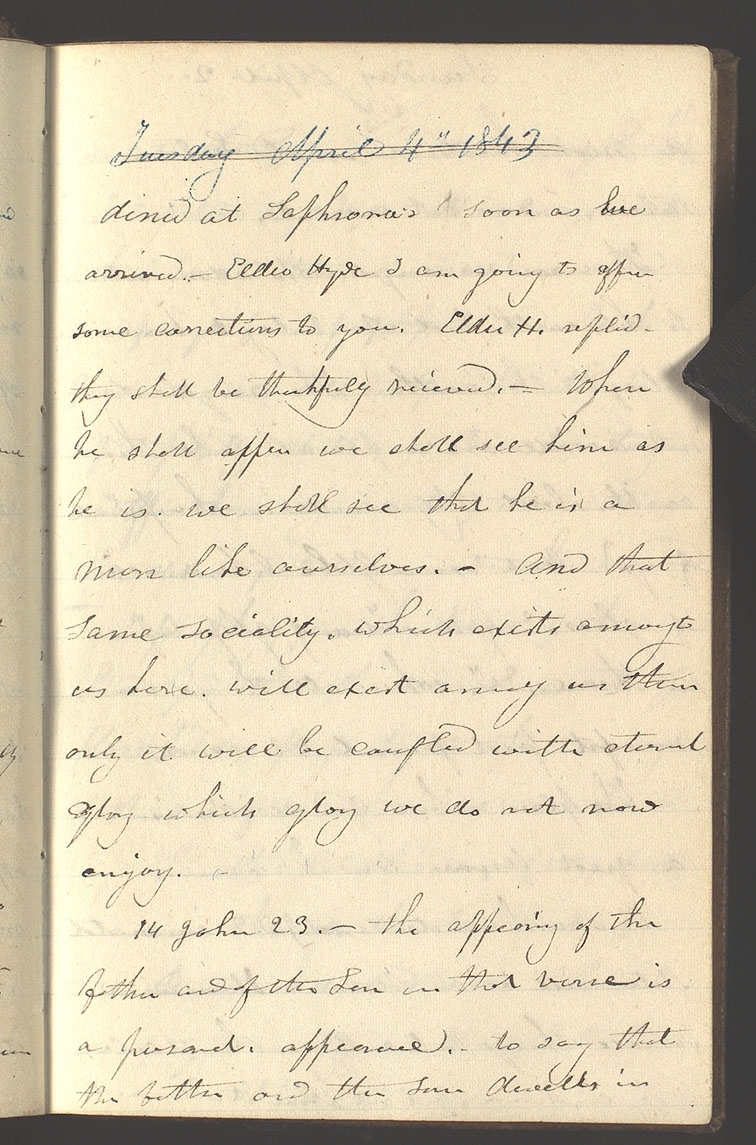 Tuesday April 4th 1843
dined at Sophronia's soon as we
arrived.— Elder Hyde I am going to offer
some corrections to you. Elder H. replid—
they shall be thankfully received.— When
he shall appear we shall see him as
he is. we shall see that he is a
man like ourselves.— And that
same sociality. which exists amongst
us here. will exist among us there
only it will be coupled with eternal
glory which glory we do not now
enjoy.—
14 John 23.— the appearing of the
father and of the Son in that verse is
a personal. appearance.— to say that
the father and the Son dwells in